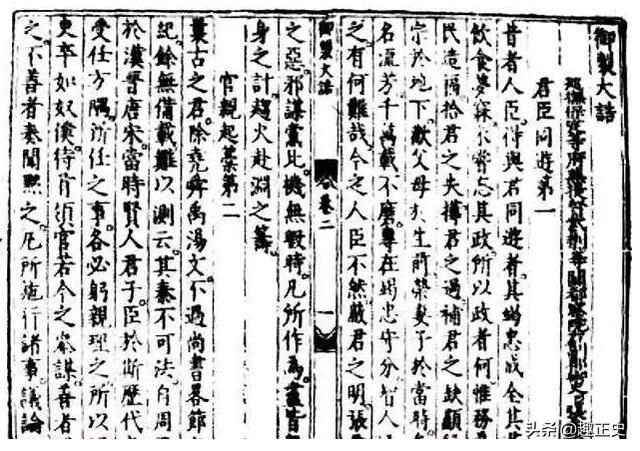 御製大誥
君臣同遊第一
昔者人臣得與君同遊者其竭忠成全其
飲食夢寐未嘗忘其政所以政者何惟務
民造福拾君之失撙君之過補君之缺顯
宗於地下歡父母於生前榮妻子於當時
名流芳千萬載不磨專在竭忠守分智人
之有何難哉今之人臣不然蔽君之明張
御製大誥
卷二
一
之惡邪謀黨比幾無暇時凡所作為盡皆
身之計趨火赴淵之籌
官親起藁第二
曩古之君除堯舜禹湯文不過尚書畧節
紀餘無備載難以測云其秦不可法自周
於漢晉唐宋當時賢人君子臣於斯歷代
受任方隅所任之事各必躬親理之所以
史卒如奴僕待首領官若今之參謀善者
之不善者奏聞黜之凡所施行諸事議論
头条@趣正史